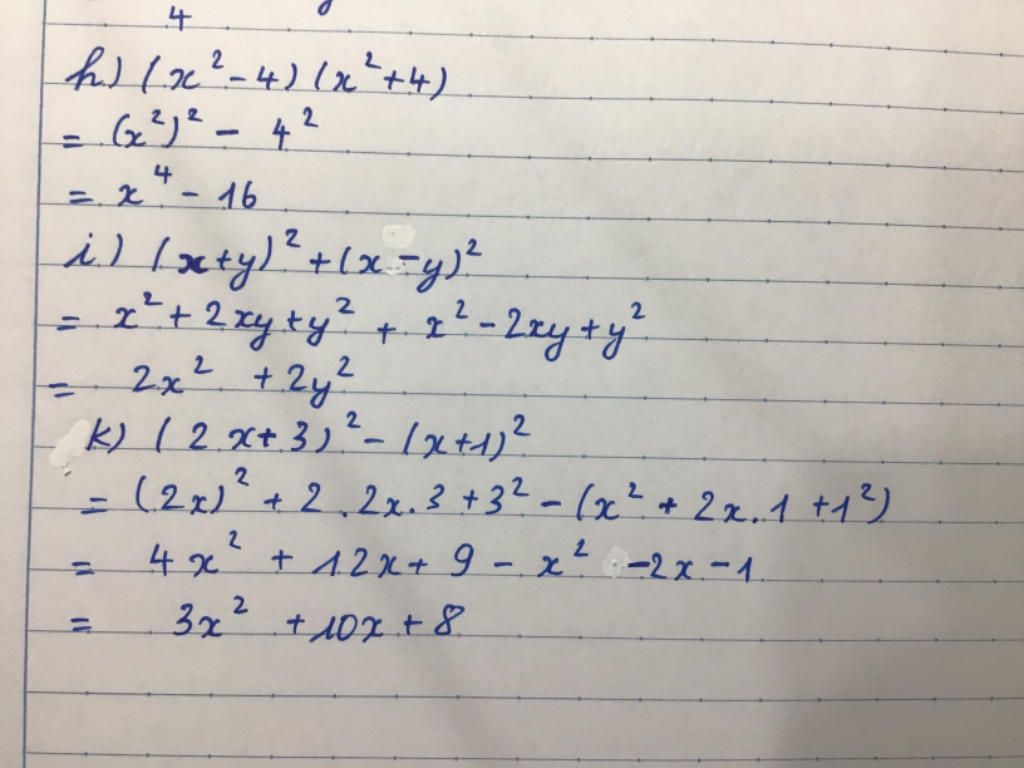 4
h) (x² - 4) (x² + 4)
= (x²)² - 4²
= x⁴ - 16
i) (x+y)² + (x - y)²
= x² + 2xy + y² + x² - 2xy + y²
= 2x² + 2y²
k) (2x + 3)² - (x+1)²
= (2x)² + 2 . 2x . 3 + 3² - (x² + 2x . 1 + 1²)
= 4x² + 12x + 9 - x² - 2x - 1
= 3x² + 10x + 8